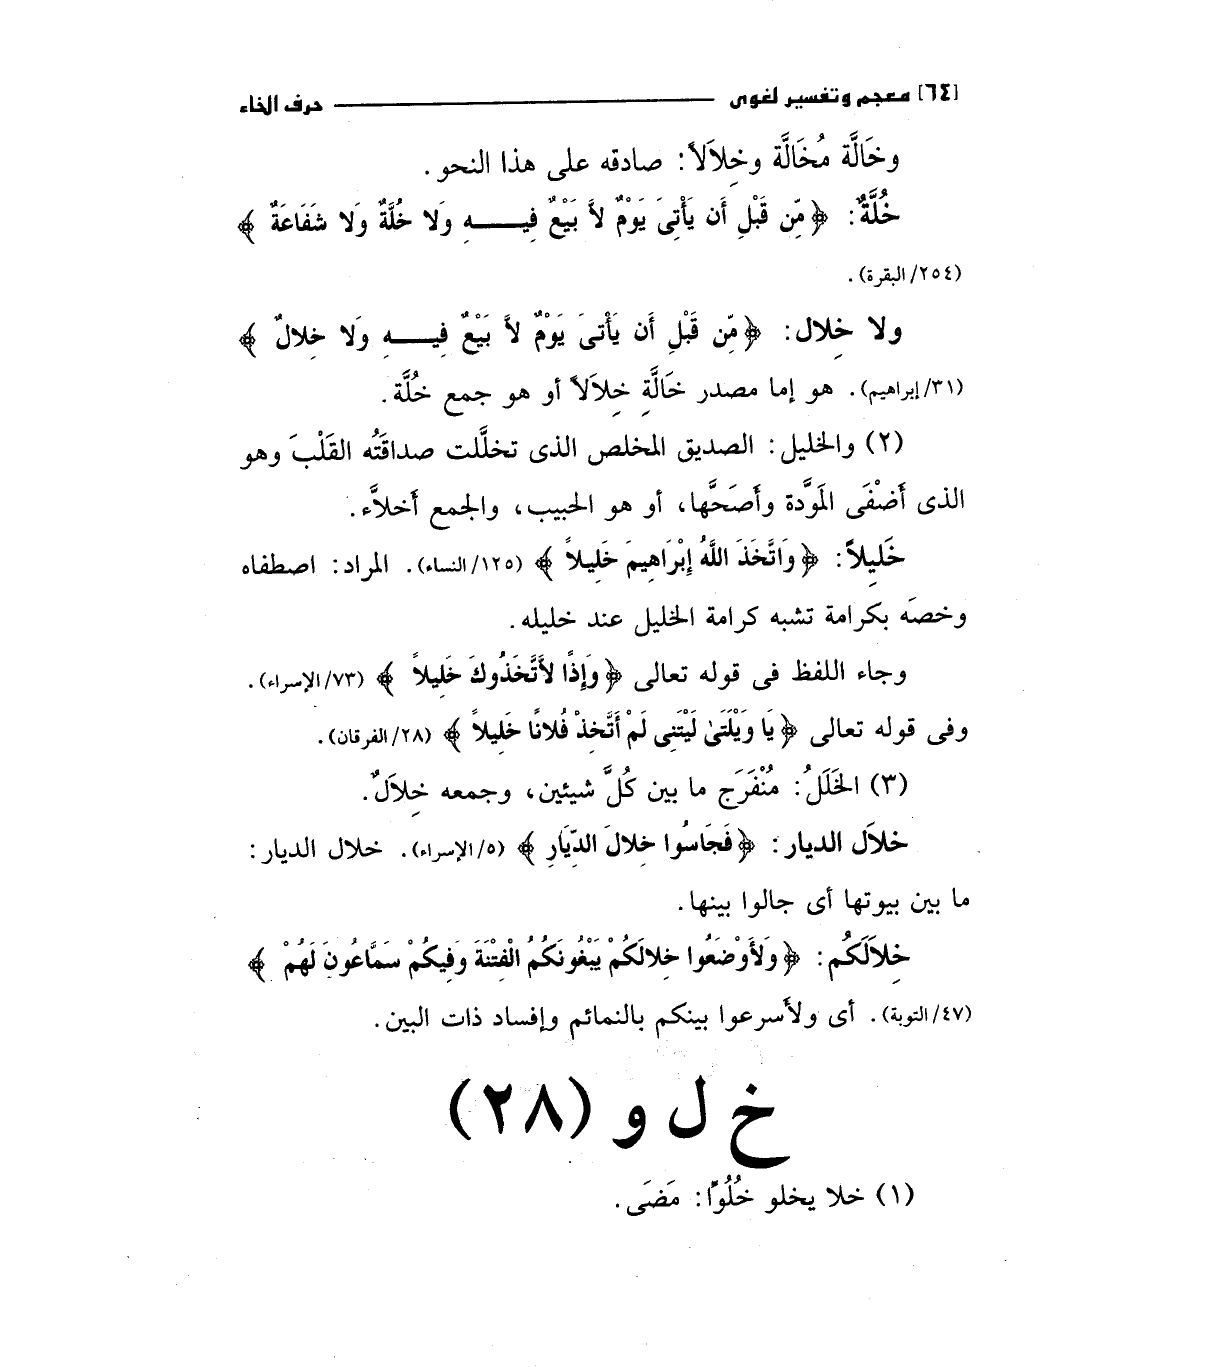 [٦٤] معجم وتفسير لغوى حرف الخاء
وخَالَّة مُخَالَّة وخِلاَلاً: صادقه على هذا النحو.
خُلَّةٌ: ﴿مِّن قَبْلِ أَن يَأْتِىَ يَوْمٌ لاَّ بَيْعٌ فِيـــــهِ وَلا خُلَّةٌ وَلا شَفَاعَةٌ ﴾
(٢٥٤/ البقرة).
ولا خِلال: ﴿مِّن قَبْلِ أَن يَأْتىَ يَوْمٌ لاَّ بَيْعٌ فِيـــــهِ وَلا خِلالٌ ﴾
(٣١/ إبراهيم). هو إما مصدر خَالَّةِ خِلاَلاً أو هو جمع خُلَّة.
(٢) والخليل: الصديق المخلص الذى تخلَّلت صداقَتُه القَلْبَ وهو
الذى أَصْفَى المَوَّدة وأَصَحَّها، أو هو الحبيب، والجمع أخلاَّء.
خَلِيلاً: ﴿وَاتَّخَذَ اللَّهُ إِبْرَاهِيمَ خَلِيلاً ﴾ (١٢٥/ النساء). المراد: اصطفاه
وخصَه بكرامة تشبه كرامة الخليل عند خليله.
وجاء اللفظ فى قوله تعالى ﴿وَإِذًا لاَّتَّخَذُوكَ خَلِيلاً ﴾ (٧٣/ الإسراء).
وفى قوله تعالى ﴿يَا وَيْلَتَىٰ لَيْتَنِى لَمْ أَتَّخِذْ فُلانًا خَلِيلاً ﴾ (٢٨/ الفرقان).
(٣) الخَلَلُ: مُنْفَرَج ما بين كُلَّ شيئين، وجمعه خِلاَلٌ.
خلاَل الديار: ﴿فَجَاسُوا خِلالَ الدِّيَارِ ﴾ (٥/ الإسراء). خلال الديار:
ما بين بيوتها أى جالوا بينها.
خِلاَلَكُم: ﴿وَلأَوْضَعُوا خِلالَكُمْ يَبْغُونَكُمُ الْفِتْنَةَ وَفِيكُمْ سَمَّاعُونَ لَهُمْ ﴾
(٤٧/ التوبة). أى ولأسرعوا بينكم بالنمائم وإفساد ذات البين.
خ ل و (٢٨)
(١) خلا يخلو خُلُوًّا: مَضَى.